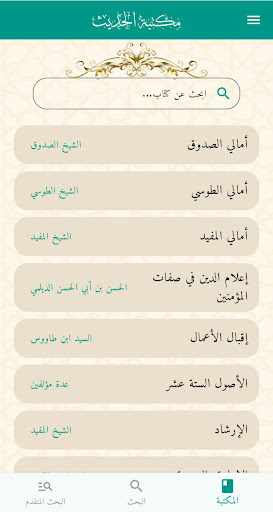 مكتبة الحديث
ابحث عن كتاب...
أمالي الصدوق
الشيخ الصدوق
أمالي الطوسي
الشيخ الطوسي
أمالي المفيد
الشيخ المفيد
إعلام الدين في صفات
المؤمنين
الحسن بن أبي الحسن الديلمي
إقبال الأعمال
السيد ابن طاووس
الأصول الستة عشر
عدة مؤلفين
الإرشاد
الشيخ المفيد
المكتبة
البحث
البحث المتقدم